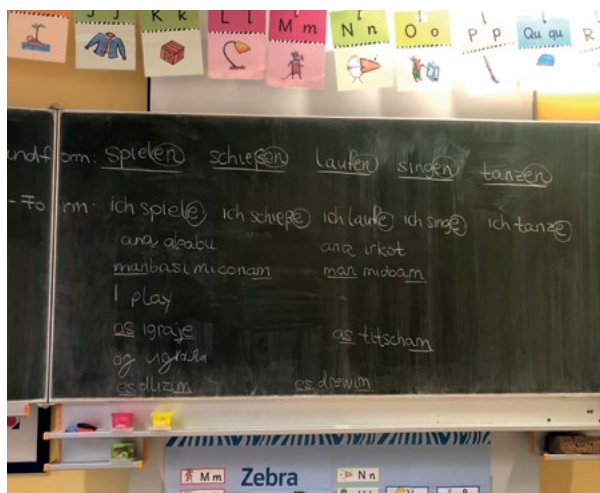 J j K k L l M m N n O o P p Qu qu R
undf orm: spielen schießen laufen singen tanzen
- Fo rm: ich spiele ich schieße ich laufe ich singe ich tanze
ana alaabu ana irkot
man basi miconam man midoam
I play
as igraje as titscham
es dlizim es drewim
M m Zebra N n